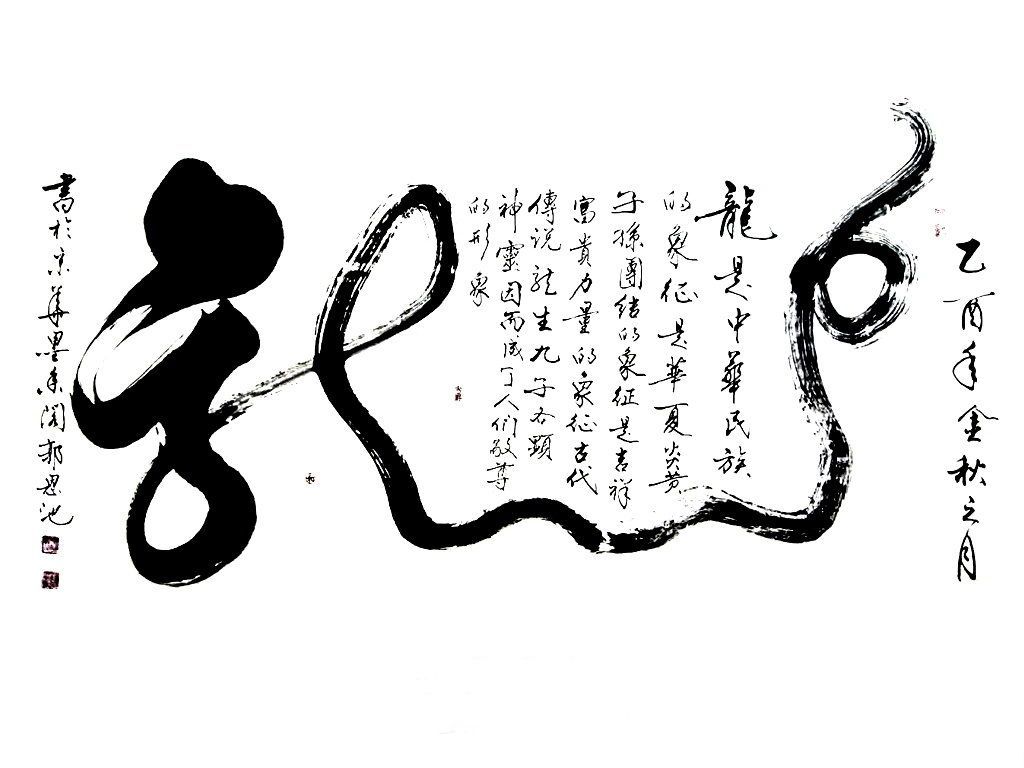 龍
乙酉年金秋之月
龍是中華民族
的象征是華夏炎黄
子孫團结的象征是吉祥
富貴力量的象征古代
傳说龍生九子各顯
神靈因而成了人们敬尊
的形象
書於京華墨香閣郝思池